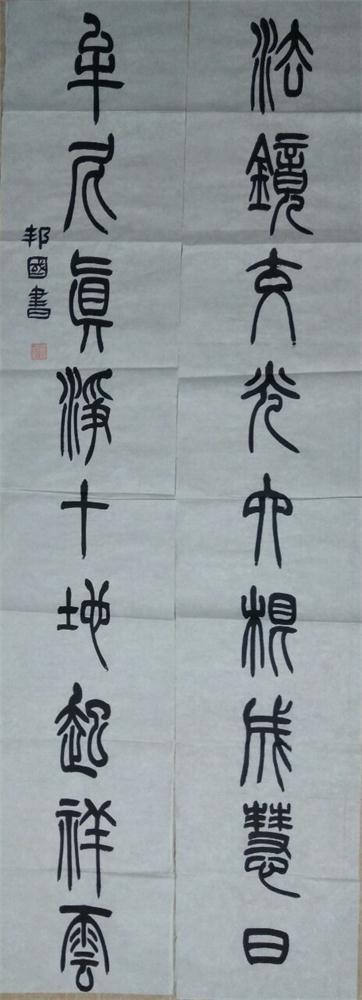 法鏡交光六相成慧日
牟尼眞淨十地起祥雲
邦國書